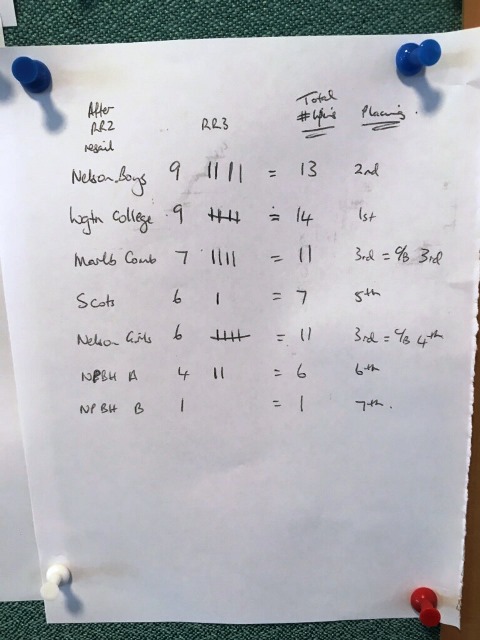 After RR2 resail RR3 Total # Wins Placing
Nelson Boys 9 |||| = 13 2nd
Wgtn College 9 |||| = 14 1st
Marlb Comb 7 |||| = 11 3rd = C/B 3rd
Scots 6 | = 7 5th
Nelson Girls 6 |||| = 11 3rd = C/B 4th
NPBH A 4 || = 6 6th
NPBH B 1 = 1 7th.